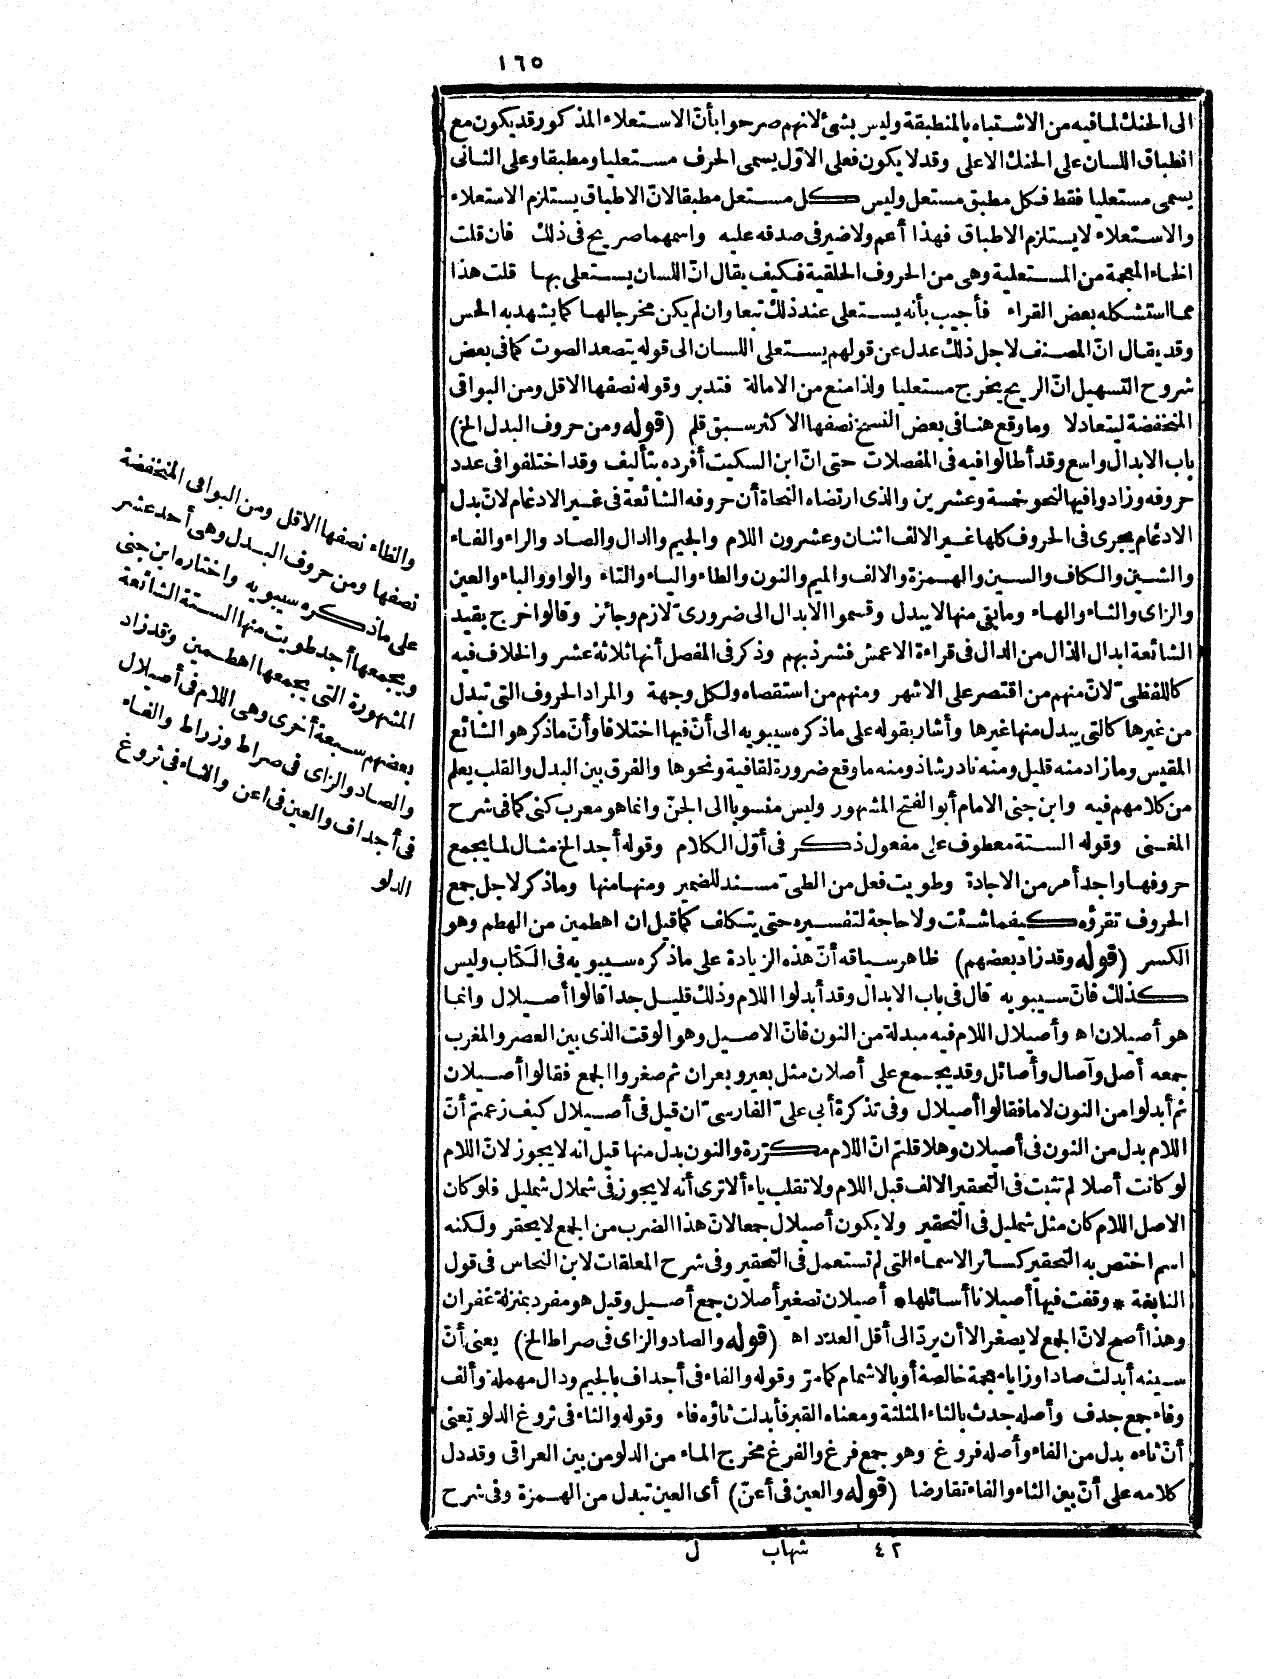 ١٦٥
الى الحنك لما فيه من الاشتباه بالمنطبقة وليس بشئ لانهم صرحوا بأنّ الاستعلاء المذكور قد يكون مع
انطباق اللسان على الحنك الاعلى وقد لا يكون فعلى الاوّل يسمى الحرف مستعليا ومطبقا وعلى الثانى
يسمى مستعليا فقط فكل مطبق مستعل وليس كل مستعل مطبقا لانّ الاطباق يستلزم الاستعلاء
والاستعلاء لا يستلزم الاطباق فهذا أعم ولا ضير فى صدقه عليه واسمهما صريح فى ذلك فان قلت
الخاء المعجمة من المستعلية وهى من الحروف الحلقية فكيف يقال انّ اللسان يستعلى بها قلت هذا
مما استشكله بعض القراء فأجيب بأنه يستعلى عند ذلك تبعا وان لم يكن مخرجا لها كما يشهد به الحس
وقد يقال انّ المصنف لاجل ذلك عدل عن قولهم يستعلى اللسان الى قوله يتصعد الصوت كما فى بعض
شروح التسهيل انّ الريح يخرج مستعليا ولذا منع من الامالة فتدبر وقوله نصفها الاقل ومن البواقى
المنخفضة ليتعادلا وما وقع هنا فى بعض النسخ نصفها الاكثر سبق قلم (قوله ومن حروف البدل الخ)
باب الابدال واسع وقد أطالوا فيه فى المفصلات حتى انّ ابن السكيت أفرده بتأليف وقد اختلفوا فى عدد
حروفه وزادوا فيها لنحو خمسة وعشرين والذى ارتضاه النحاة أن حروفه الشائعة فى غير الادغام لانّ بدل
الادغام يجرى فى الحروف كلها غير الالف اثنان وعشرون اللام والجيم والدال والصاد والراء والفاء
والشين والكاف والسين والهمزة والالف والميم والنون والطاء والياء والتاء والواو والباء والعين
والزاى والثاء والهاء وما بقى منها لا يبدل وقسموا الابدال الى ضرورىّ لازم وجائز وقالوا خرج بقيد
الشائعة ابدال الذال من الدال فى قراءة الاعمش فشرذ بهم وذكر فى المفصل أنها ثلاثة عشر والخلاف فيه
كاللفظىّ لانّ منهم من اقتصر على الاشهر ومنهم من استقصاه ولكل وجهة والمراد الحروف التى تبدل
من غيرها كالتى يبدل منها غيرها وأشار بقوله على ما ذكره سيبويه الى أنّ فيها اختلافا وأنّ ما ذكر هو الشائع
المقيس وما زاد منه قليل ومنه نادر شاذ ومنه ما وقع ضرورة لقافية ونحوها والفرق بين البدل والقلب يعلم
من كلامهم فيه وابن جنى الامام أبو الفتح المشهور وليس منسوبا الى الجنّ وانما هو معرب كنى كما فى شرح
المغنى وقوله الستة معطوف على مفعول ذكر فى أوّل الكلام وقوله أجد الخ مثال لما يجمع
حروفها واجد أمر من الاجادة وطويت فعل من الطىّ مسند للضمير ومنها منها وما ذكر لاجل جمع
الحروف تقرؤه كيفما شئت ولا حاجة لتفسيره حتى يتكلف كما قيل ان اهطمين من الهطم وهو
الكسر (قوله وقد زاد بعضهم) ظاهر سياقه أنّ هذه الزيادة على ما ذكره سيبويه فى الكتاب وليس
كذلك فانّ سيبويه قال فى باب الابدال وقد أبدلوا اللام وذلك قليل جدا قالوا أصيلال وانما
هو أصيلان اه وأصيلال اللام فيه مبدلة من النون فانّ الاصيل وهو الوقت الذى بين العصر والمغرب
جمعه أصل وآصال وأصائل وقد يجمع على أصلان مثل بعير وبعران ثم صغروا الجمع فقالوا أصيلان
ثم أبدلوا من النون لاما فقالوا أصيلال وفى تذكرة أبى علىّ الفارسىّ ان قيل فى أصيلال كيف زعمتم أنّ
اللام بدل من النون فى أصيلان وهلا قلتم انّ اللام مكرّرة والنون بدل منها قيل انه لا يجوز لانّ اللام
لو كانت أصلا لم تثبت فى التحقير الالف قبل اللام ولا تقلب ياء ألا ترى أنه لا يجوز فى شملال شمليل فلو كان
الاصل اللام كان مثل شمليل فى التحقير ولا يكون أصيلال جمعا لانّ هذا الضرب من الجمع لا يحقر ولكنه
اسم اختص به التحقير كسائر الاسماء التى لم تستعمل فى التحقير وفى شرح المعلقات لابن النحاس فى قول
النابغة * وقفت فيها أصيلانا أسائلها * أصيلان تصغير أصلان جمع أصيل وقيل هو مفرد بمنزلة غفران
وهذا أصح لانّ الجمع لا يصغر الا أن يردّ الى أقل العدد اه (قوله والصاد والزاى فى صراط الخ) يعنى أنّ
سينه أبدلت صادا وزايا معجمة خالصة أو بالاشمام كما مرّ وقوله والفاء فى أجداف بالجيم ودال مهملة وألف
وفاء جمع جدف وأصله جدث بالثاء المثلثة ومعناه القبر فأبدلت ثاؤه فاء وقوله والثاء فى ثروغ الدلو يعنى
أنّ ثاءه بدل من الفاء وأصله فروغ وهو جمع فرغ والفرغ مخرج الماء من الدلو من بين العراقى وقد دل
كلامه على أنّ بين الثاء والفاء تقارضا (قوله والعين فى أعنّ) أى العين تبدل من الهمزة وفى شرح
٤٢ شهاب ل
والظاء نصفها الاقل ومن البواقى المنخفضة
نصفها ومن حروف البدل وهى أحد عشر
على ما ذكره سيبويه واختاره ابن جنى
ويجمعها أجد طويت منها الستة الشائعة
المشهورة التى يجمعها اهطمين وقد زاد
بعضهم سبعة أخرى وهى اللام فى أصيلال
والصاد والزاى فى صراط وزراط والفاء
فى أجداف والعين فى اعن والثاء فى ثروغ
الدلو